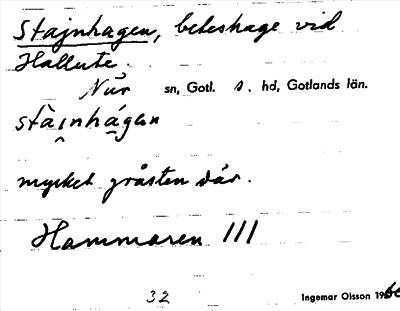 Stajnhagen, beteshage vid
Hallute.
När sn, Gotl. s. hd, Gotlands län.
stàinhágen
mycket gråsten där.
Hammaren III
32 Ingemar Olsson 1960